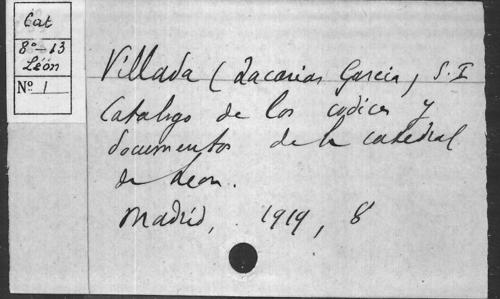 Cat
8º-13
Léon
Nº 1
Villada (Zacarias Garcia, S.I
Catalogo de los codices y
documentos de la catedral
de Leon.
Madrid, 1919, 8º